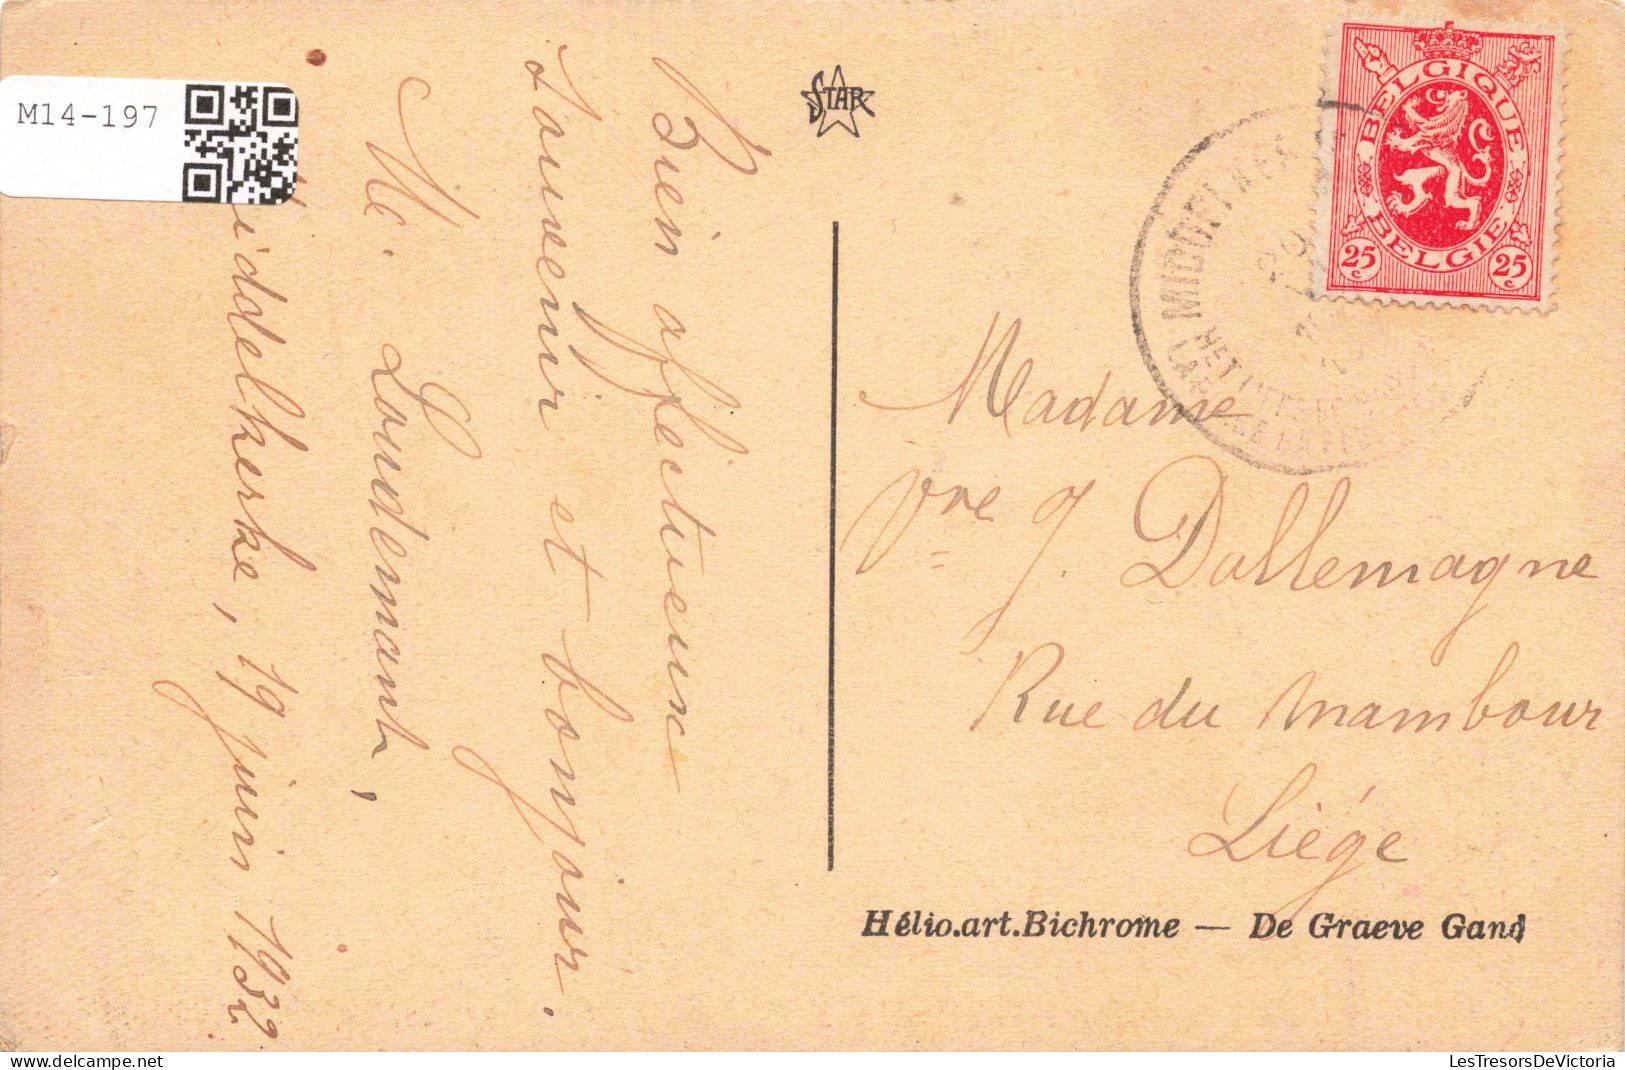 M14-197
Bien affectueux
souvenir et bonjour.
M. Loudemant,
iddelkerke, 19 juin 1932
STAR
BELGIQUE
BELGIE
25 c 25 c
Madame
Vve J. Dallemagne
Rue du Mambour
Liége
Hélio.art.Bichrome — De Graeve Gand
www.delcampe.net
LesTresorsDeVictoria